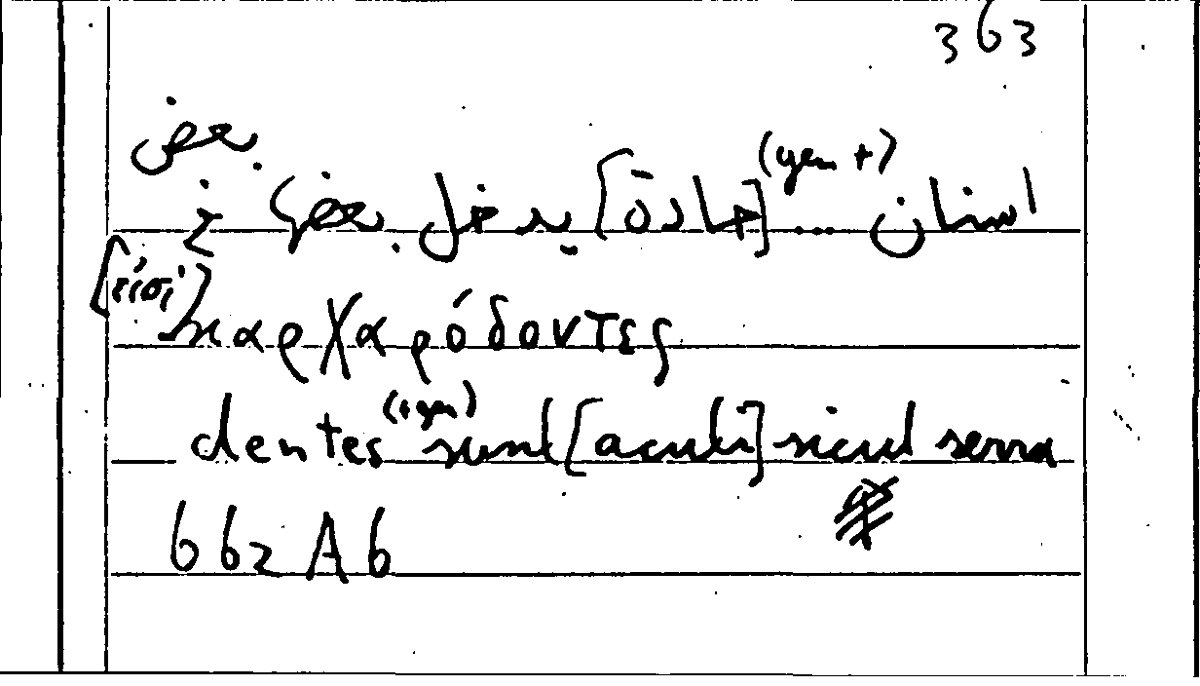 363
بعض
اسنان (gen +) ... [حادة] يدخل بعضها في
[εἰσι] καρχαρόδοντες
dentes (+gen) sunt [acuti] sicut serra
662 A6